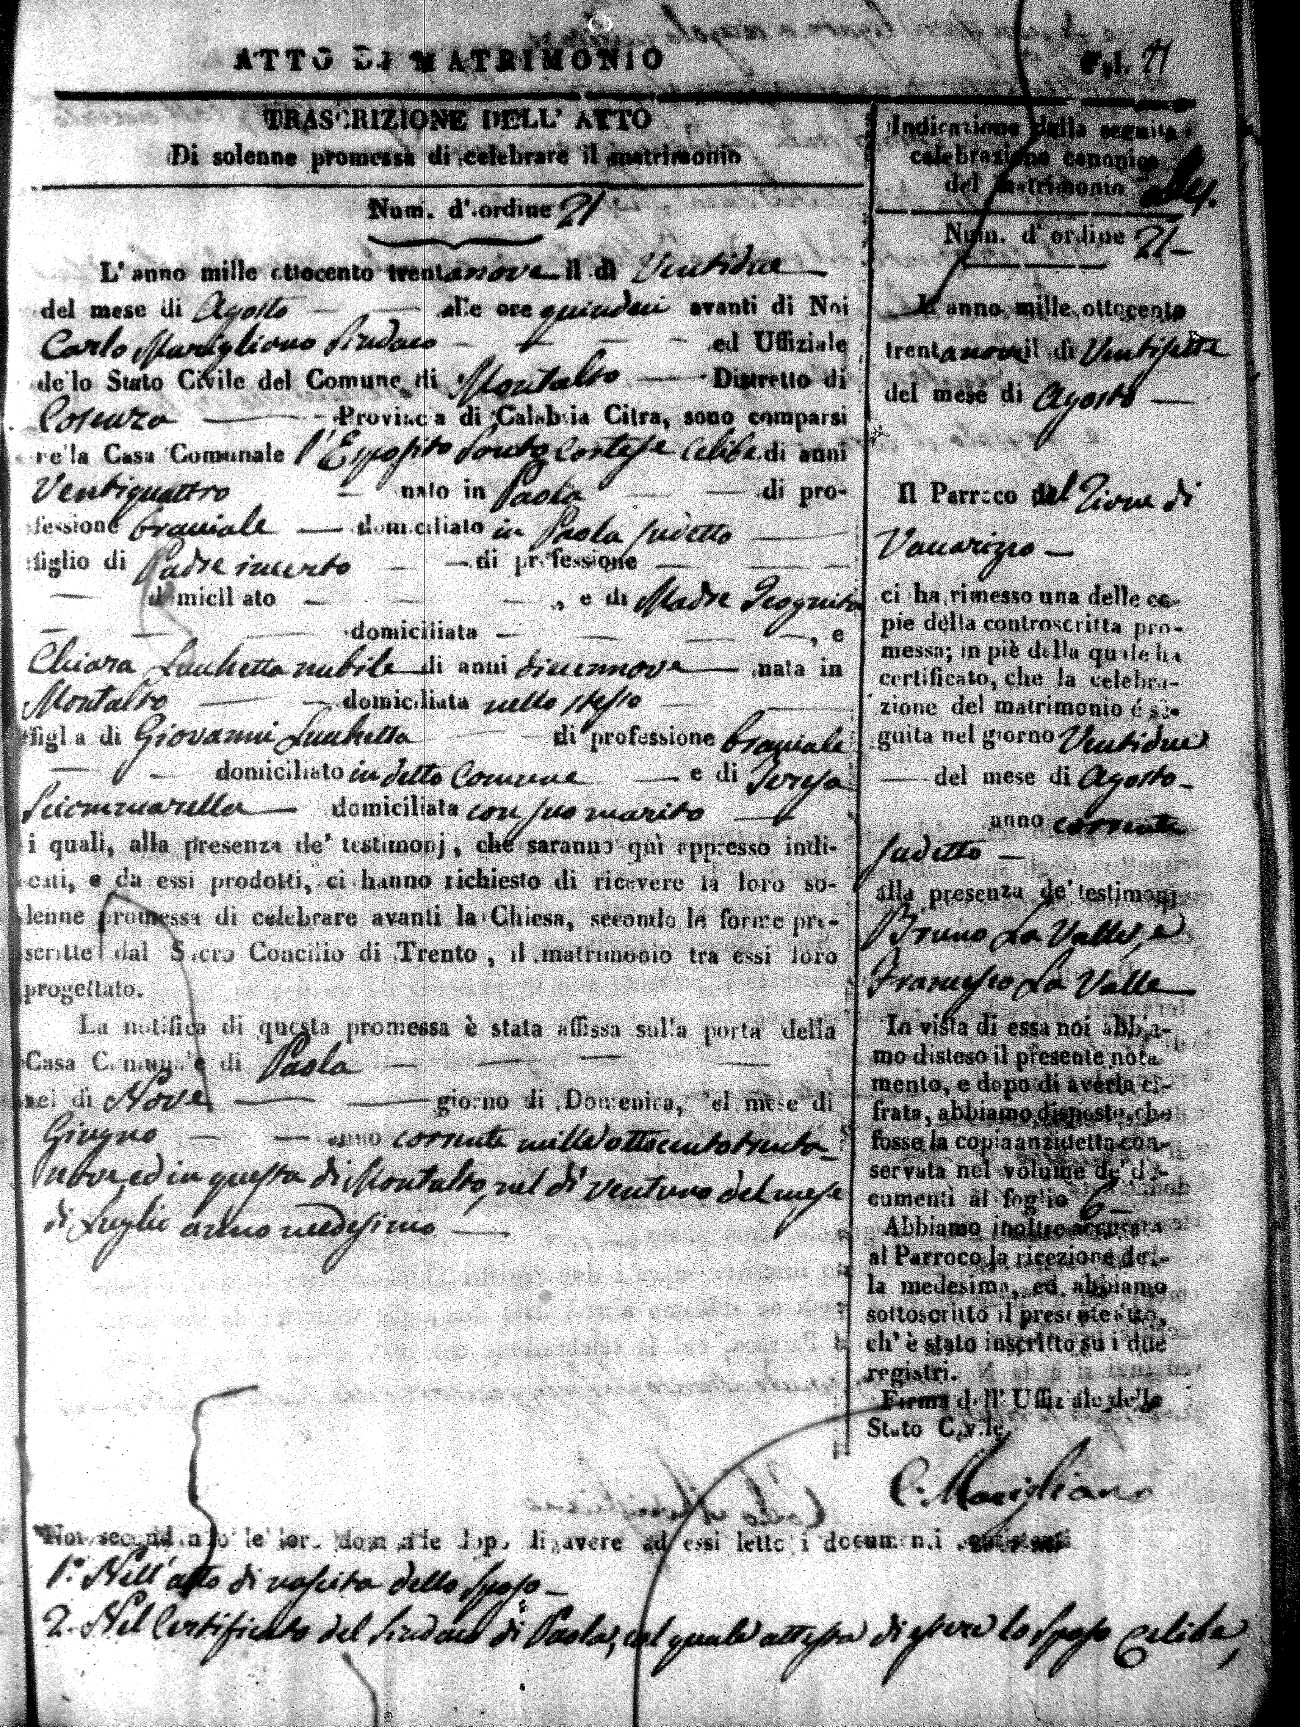 ATTO DI MATRIMONIO
Fol. 21
TRASCRIZIONE DELL' ATTO
Di solenne promessa di celebrare il matrimonio
Num. d'ordine 21
L'anno mille ottocento trentanove il dì Ventidue
del mese di Agosto alle ore quindeci avanti di Noi
Carlo Marigliano Sindaco ed Uffiziale
dello Stato Civile del Comune di Montalto Distretto di
Cosenza Provincia di Calabria Citra, sono comparsi
nella Casa Comunale l'Esposito Santo Cortese celibe di anni
Ventiquattro nato in Paola di pro-
fessione braciale domiciliato in Paola sudetto
figlio di Padre incerto di professione
domiciliato , e di Madre Incognita
domiciliata , e
Chiara Luchetta nubile di anni diciennove nata in
Montalto domiciliata nello stesso
figlia di Giovanni Luchetta di professione braciale
domiciliato in detto Comune e di Teresa
Sciommarella domiciliata con suo marito
i quali, alla presenza de' testimonj, che saranno quì appresso indi-
cati, e da essi prodotti, ci hanno richiesto di ricevere la loro so-
lenne promessa di celebrare avanti la Chiesa, secondo le forme pre-
scritte dal Sacro Concilio di Trento, il matrimonio tra essi loro
progettato.
La notifica di questa promessa è stata affissa sulla porta della
Casa Comunale di Paola
nel dì Nove giorno di Domenica, del mese di
Giugno anno corrente mille ottocento trenta
nove, ed in questa di Montalto, nel dì ventuno del mese
di Luglio anno medesimo
Indicazione della seguita
celebrazione canonica
del matrimonio
Num. d'ordine 21
L'anno mille ottocento
trentanove il dì Ventisette
del mese di Agosto
Il Parroco del Rione di
Vaccarizzo
ci ha rimesso una delle co-
pie della controscritta pro-
messa; in piè della quale ha
certificato, che la celebra-
zione del matrimonio é se-
guita nel giorno Ventidue
del mese di Agosto
anno corrente
sudetto
alla presenza de' testimonj
Bruno La Valle, e
Francesco La Valle
In vista di essa noi abbia-
mo disteso il presente nota
mento, e dopo di averla ci-
frata, abbiamo disposto, che
fosse la copia anzidetta con-
servata nel volume de' do-
cumenti al foglio 6
Abbiamo inoltre accusata
al Parroco la ricezione del-
la medesima, ed abbiamo
sottoscritto il presente atto,
ch' è stato inscritto su i due
registri.
Firma dell' Uffiziale dello
Stato Civile
C. Marigliano
Noi secondando le loro domande dopo di avere ad essi letto i documenti
1.° Nell'atto di nascita dello sposo
2. Nel Certificato del Sindaco di Paola, col quale attessa di essere lo sposo Celibe,